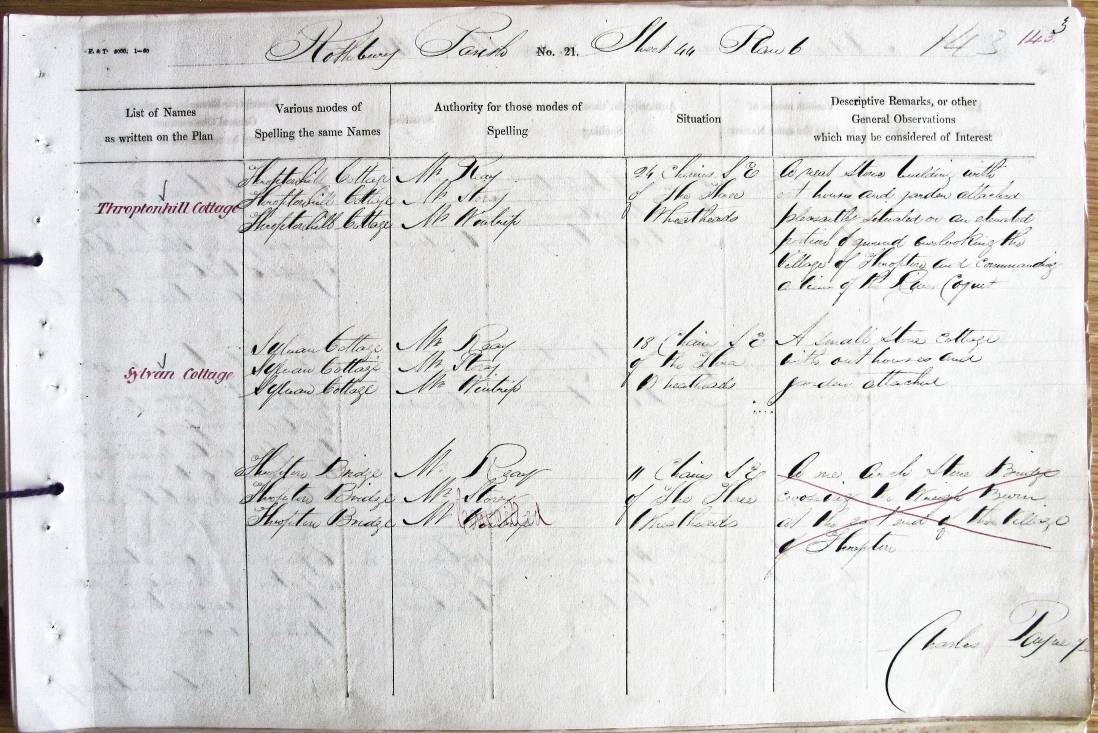 Rothbury Parish No. 21. Sheet 44 Plan 6 143 143 3
List of Names
as written on the Plan
Various modes of
Spelling the same Names
Authority for those modes of
Spelling
Situation
Descriptive Remarks, or other
General Observations
which may be considered of Interest
Throptonhill Cottage
Throptonhill Cottage
Throptonhill Cottage
Throptonhill Cottage
Mr. Reay
Mr. Storey
Mr. Wintrip
24 Chains S E
of the Three
Wheatheads
A neat Stone building with
out houses and garden attached
pleasantly situated on an elevated
portion of ground overlooking the
Village of Thropton and Commanding
a view of the River Coquet
Sylvan Cottage
Sylvan Cottage
Sylvan Cottage
Sylvan Cottage
Mr. Reay
Mr. Storey
Mr. Wintrip
18 Chains S E
of the Three
Wheatheads
A small Stone Cottage
with out houses and
garden attached
Thropton Bridge
Thropton Bridge
Thropton Bridge
Mr. Reay
Mr. Storey
Mr. Wintrip
Cancelled
11 Chains S E
of The Three
Wheatheads
A one arch Stone Bridge
crossing the Wreigh Burn
at the east end of the Village
of Thropton
Charles Payne